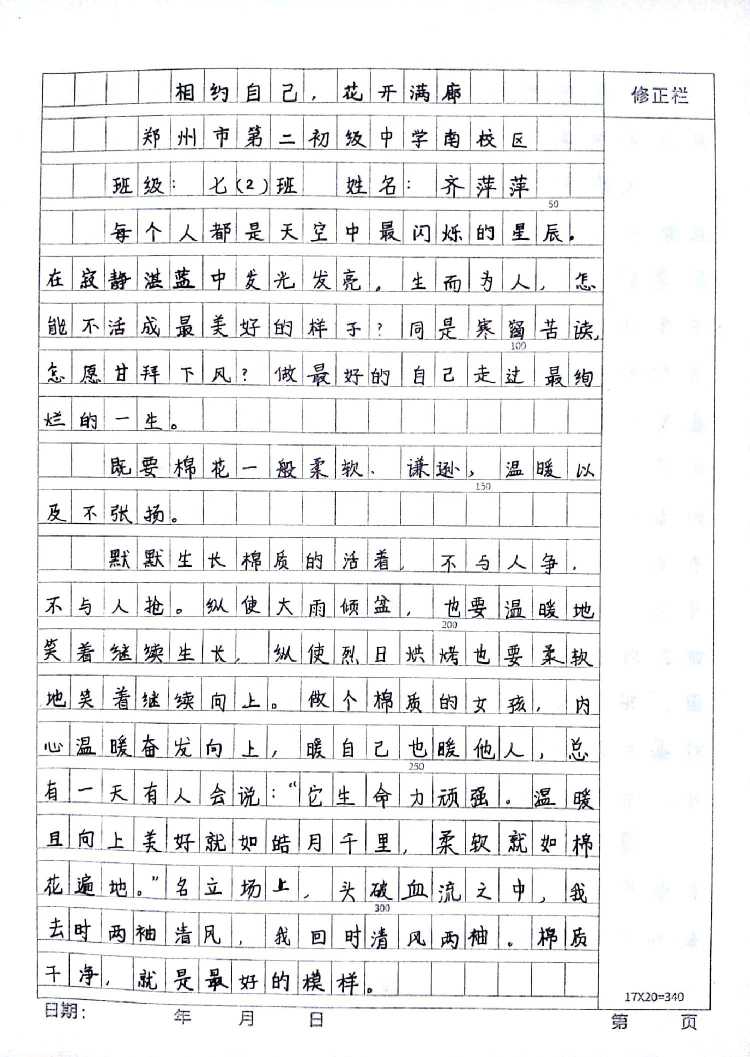 相约自己，花开满廊
修正栏
郑州市第二初级中学南校区
班级：七(2)班 姓名：齐萍萍
50
每个人都是天空中最闪烁的星辰。
在寂静湛蓝中发光发亮。生而为人，怎
能不活成最美好的样子？同是寒窗苦读，
100
怎愿甘拜下风？做最好的自己走过最绚
烂的一生。
既要棉花一般柔软、谦逊，温暖以
150
及不张扬。
默默生长棉质的活着，不与人争，
不与人抢。纵使大雨倾盆，也要温暖地
200
笑着继续生长，纵使烈日烘烤也要柔软
地笑着继续向上。做个棉质的女孩，内
心温暖奋发向上，暖自己也暖他人，总
250
有一天有人会说：“它生命力顽强。温暖
且向上美好就如皓月千里，柔软就如棉
花遍地。”名立场上，头破血流之中，我
300
去时两袖清风，我回时清风两袖。棉质
干净，就是最好的模样。
17X20=340
日期： 年 月 日 第 页